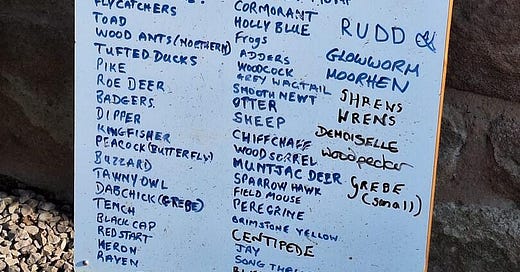 FLYCATCHERS
TOAD
WOOD ANTS (NORTHERN)
TUFTED DUCKS
PIKE
ROE DEER
BADGERS
DIPPER
KINGFISHER
PEACOCK (BUTTERFLY)
BUZZARD
TAWNY OWL
DABCHICK (GREBE)
TENCH
BLACK CAP
REDSTART
HERON
RAVEN
CORMORANT
HOLLY BLUE
FROGS
ADDERS
WOODCOCK
GREY WAGTAIL
SMOOTH NEWT
OTTER
SHEEP
CHIFFCHAFF
WOOD SORREL
MUNTJAC DEER
SPARROW HAWK
FIELD MOUSE
PEREGRINE
BRIMSTONE YELLOW
CENTIPEDE
JAY
SONG
RUDD
GLOWWORM
MOORHEN
SHRENS
WRENS
DEMOISELLE
WOODPECKER
GREBE
(small)